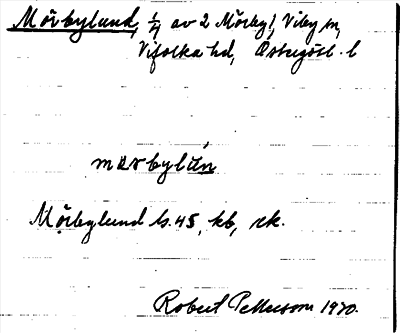 Mörbylund, 1/4 av 2 Mörby!, Viby sn,
Vifolka hd, Östergötl. l
mœrbylún
Mörbylund ls. 45, kb, rk.
Robert Pettersson 1970.